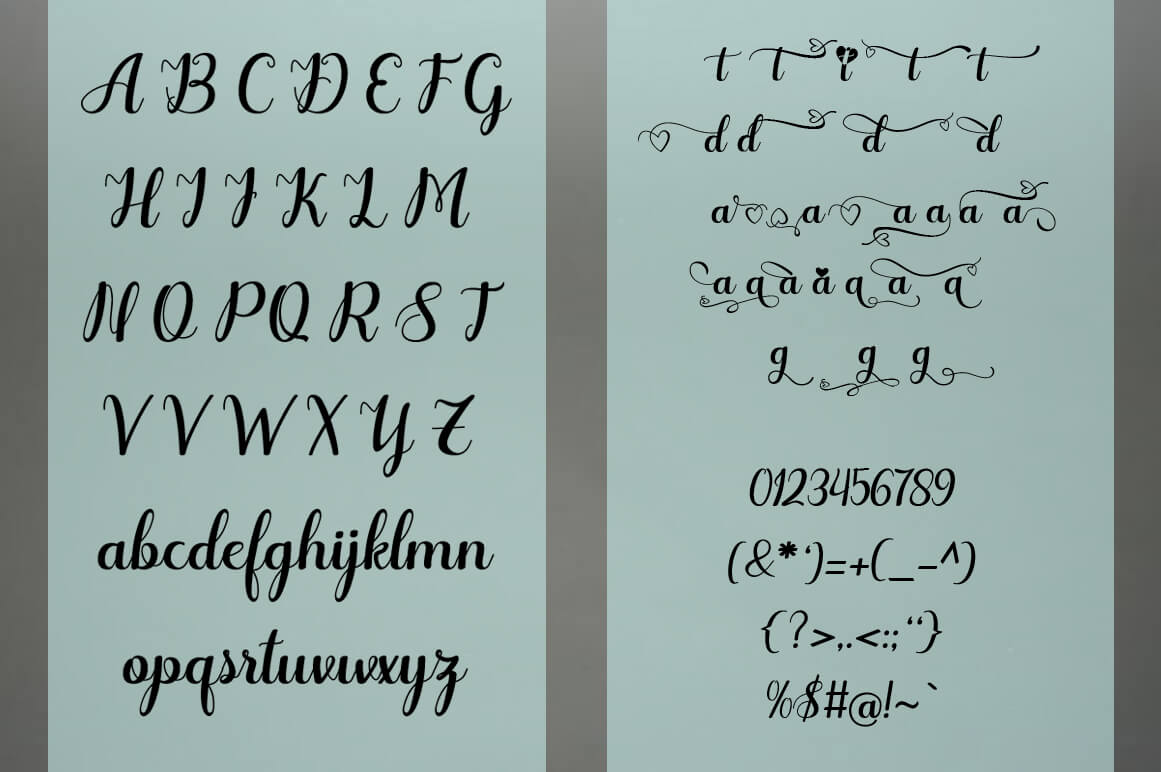 A B C D E F G
H I J K L M
N O P Q R S T
V V W X Y Z
abcdefghijklmn
opqsrtuvwxyz
t t i t t
d d d d
a a a a a a
a q a a q a q
g g g
0123456789
(&*‘)=+(_-^)
{?>,.<:;“}
%$#@!~`